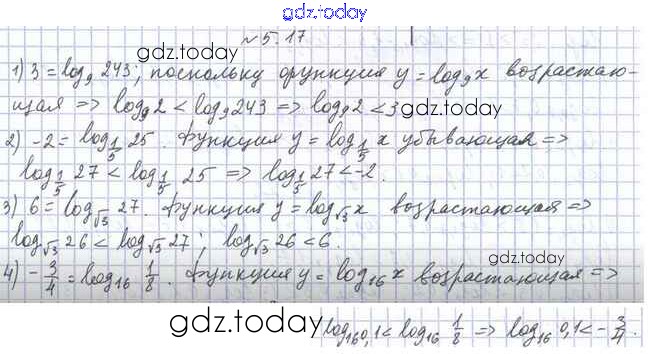 gdz.today
№ 5.17
gdz.today
1) 3 = log₉ 243; поскольку функция y = log₉x возрастаю-
щая => log₉2 < log₉243 => log₉2 < 3
gdz.today
2) -2 = log_{1/5} 25. Функция y = log_{1/5} x убывающая =>
log_{1/5} 27 < log_{1/5} 25 => log_{1/5} 27 < -2.
3) 6 = log_{√3} 27. Функция y = log_{√3} x возрастающая =>
log_{√3} 26 < log_{√3} 27; log_{√3} 26 < 6.
gdz.today
4) -3/4 = log₁₆ 1/8. Функция y = log₁₆x возрастающая =>
gdz.today
log₁₆0,1 < log₁₆ 1/8 => log₁₆ 0,1 < -3/4.